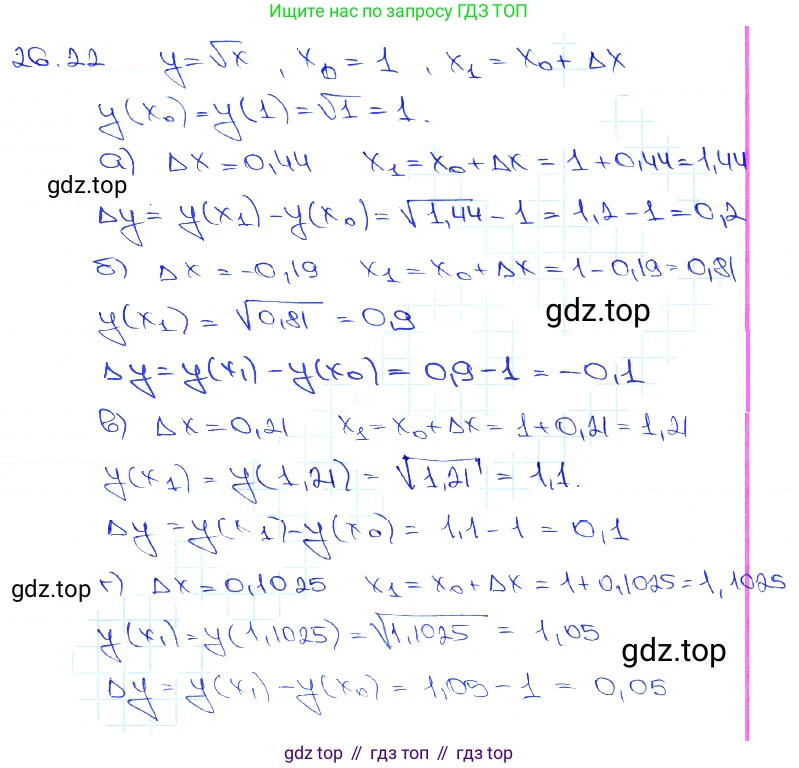 Ищите нас по запросу ГДЗ ТОП
26.22 y=√x , x₀ = 1 , x₁ = x₀ + Δx
y(x₀) = y(1) = √1 = 1.
а) Δx = 0,44 x₁ = x₀ + Δx = 1 + 0,44 = 1,44
gdz.top
Δy = y(x₁) - y(x₀) = √1,44 - 1 = 1,2 - 1 = 0,2
б) Δx = -0,19 x₁ = x₀ + Δx = 1 - 0,19 = 0,81
y(x₁) = √0,81 = 0,9
gdz.top
Δy = y(x₁) - y(x₀) = 0,9 - 1 = -0,1
в) Δx = 0,21 x₁ = x₀ + Δx = 1 + 0,21 = 1,21
y(x₁) = y(1,21) = √1,21 = 1,1.
Δy = y(x₁) - y(x₀) = 1,1 - 1 = 0,1
gdz.top
г) Δx = 0,1025 x₁ = x₀ + Δx = 1 + 0,1025 = 1,1025
y(x₁) = y(1,1025) = √1,1025 = 1,05
gdz.top
Δy = y(x₁) - y(x₀) = 1,05 - 1 = 0,05
gdz top // гдз топ // gdz top